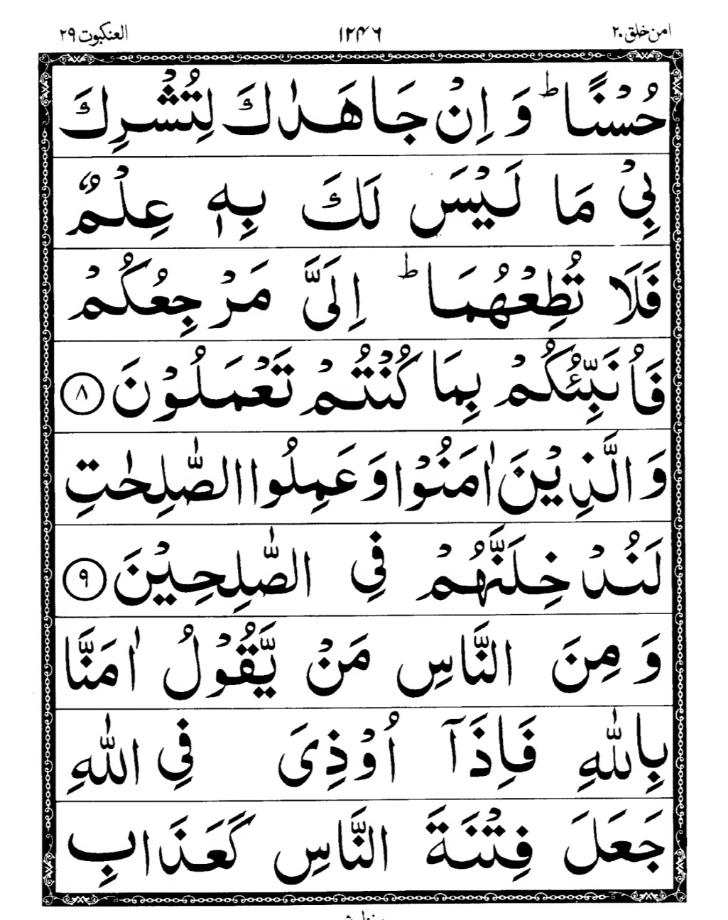 امن خلق ۲۰ ۱۲۴۶ العنکبوت ۲۹
حُسْنًا ؕ وَ اِنْ جَاهَدٰكَ لِتُشْرِكَ
بِیْ مَا لَیْسَ لَكَ بِهٖ عِلْمٌ
فَلَا تُطِعْهُمَا ؕ اِلَیَّ مَرْجِعُكُمْ
فَاُنَبِّئُكُمْ بِمَا كُنْتُمْ تَعْمَلُوْنَ ۸
وَ الَّذِیْنَ اٰمَنُوْا وَ عَمِلُوا الصّٰلِحٰتِ
لَنُدْخِلَنَّهُمْ فِی الصّٰلِحِیْنَ ۹
وَ مِنَ النَّاسِ مَنْ یَّقُوْلُ اٰمَنَّا
بِاللّٰهِ فَاِذَاۤ اُوْذِیَ فِی اللّٰهِ
جَعَلَ فِتْنَةَ النَّاسِ كَعَذَابِ